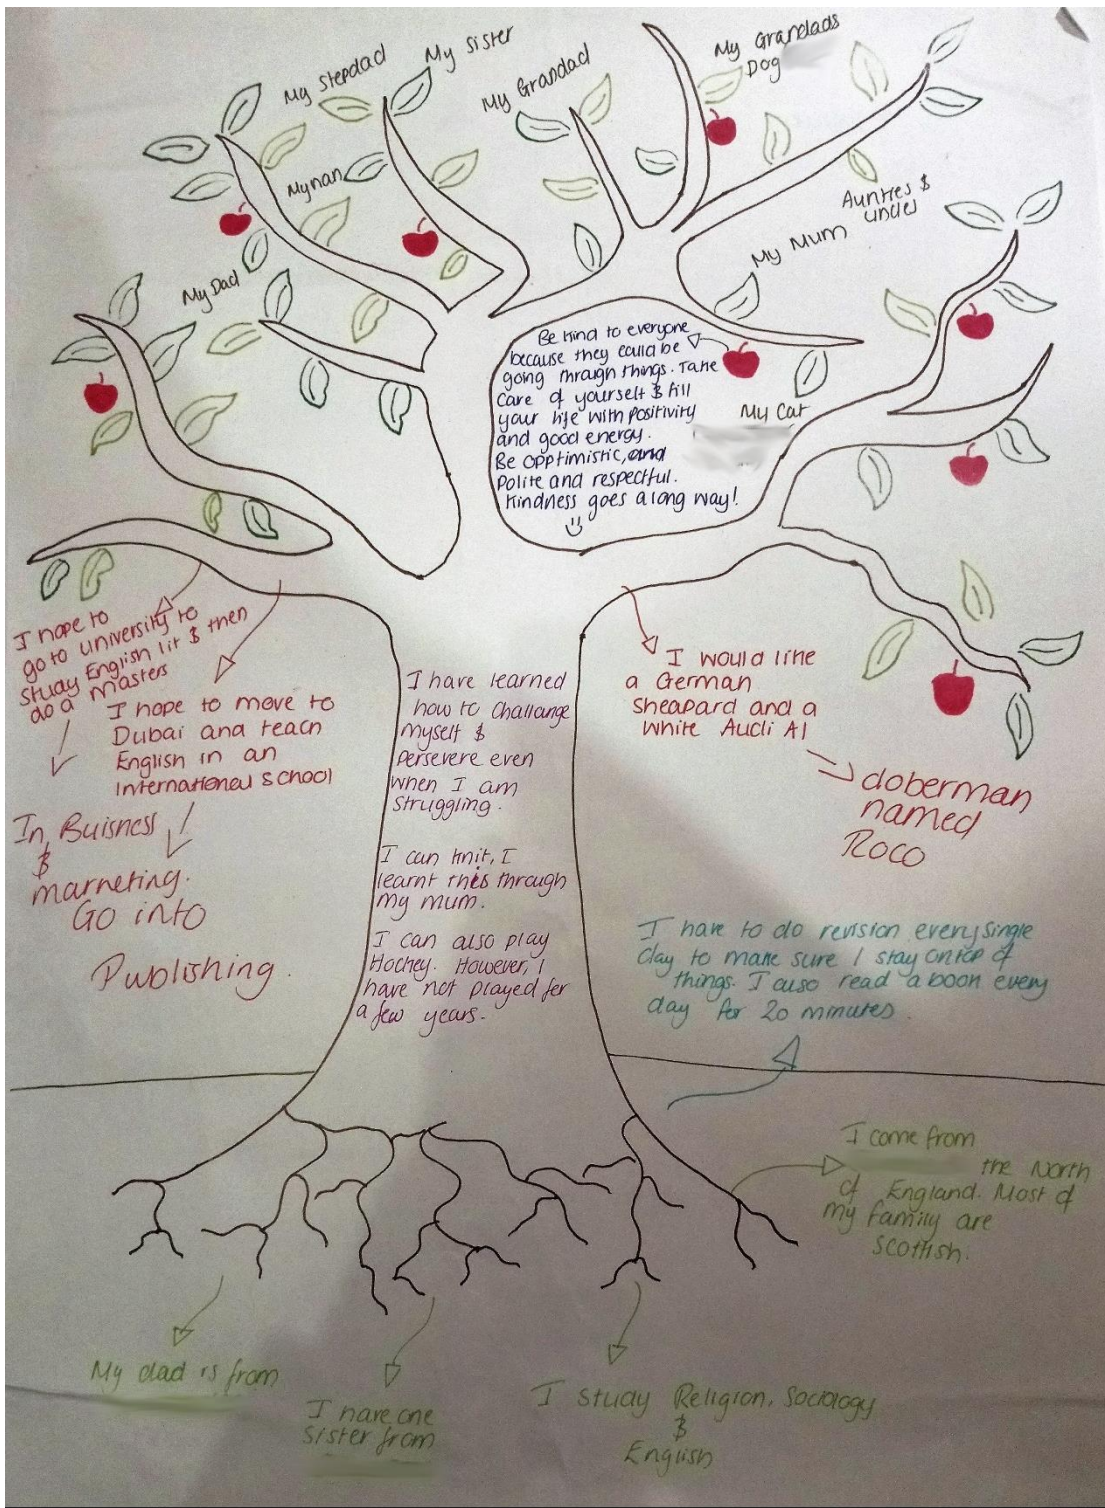 My Stepdad
My Sister
My Grandad
My Grandads
Dog
My nan
Aunties $
uncles
My Mum
My Dad
Be kind to everyone
because they could be
going through things. Take
care of yourself $ fill
your life with positivity
and good energy.
Be opptimistic, and
Polite and respectful.
Kindness goes a long way!
My Cat
I hope to
go to university to
study English lit $ then
do a masters
I hope to move to
Dubai and teach
English in an
international school
In Buisness
$
marketing.
Go into
Publishing.
I have learned
how to challange
myself $
persevere even
when I am
struggling.
I can knit, I
learnt this through
my mum.
I can also play
Hockey. However, I
have not played for
a few years.
I would like
a German
Sheapard and a
White Audi A1
doberman
named
Roco
I have to do revision every single
day to make sure I stay on top of
things. I also read a book every
day for 20 minutes.
I come from
the North
of England. Most of
my family are
Scottish.
My dad is from
I have one
Sister from
I study Religion, Sociology
$
English